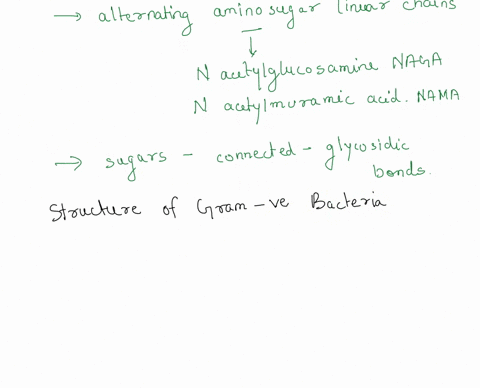 → alternating aminosugar linear chains
↓
N acetylglucosamine NAGA
N acetylmuramic acid. NAMA
→ sugars - connected - glycosidic
bonds.
Structure of Gram -ve Bacteria